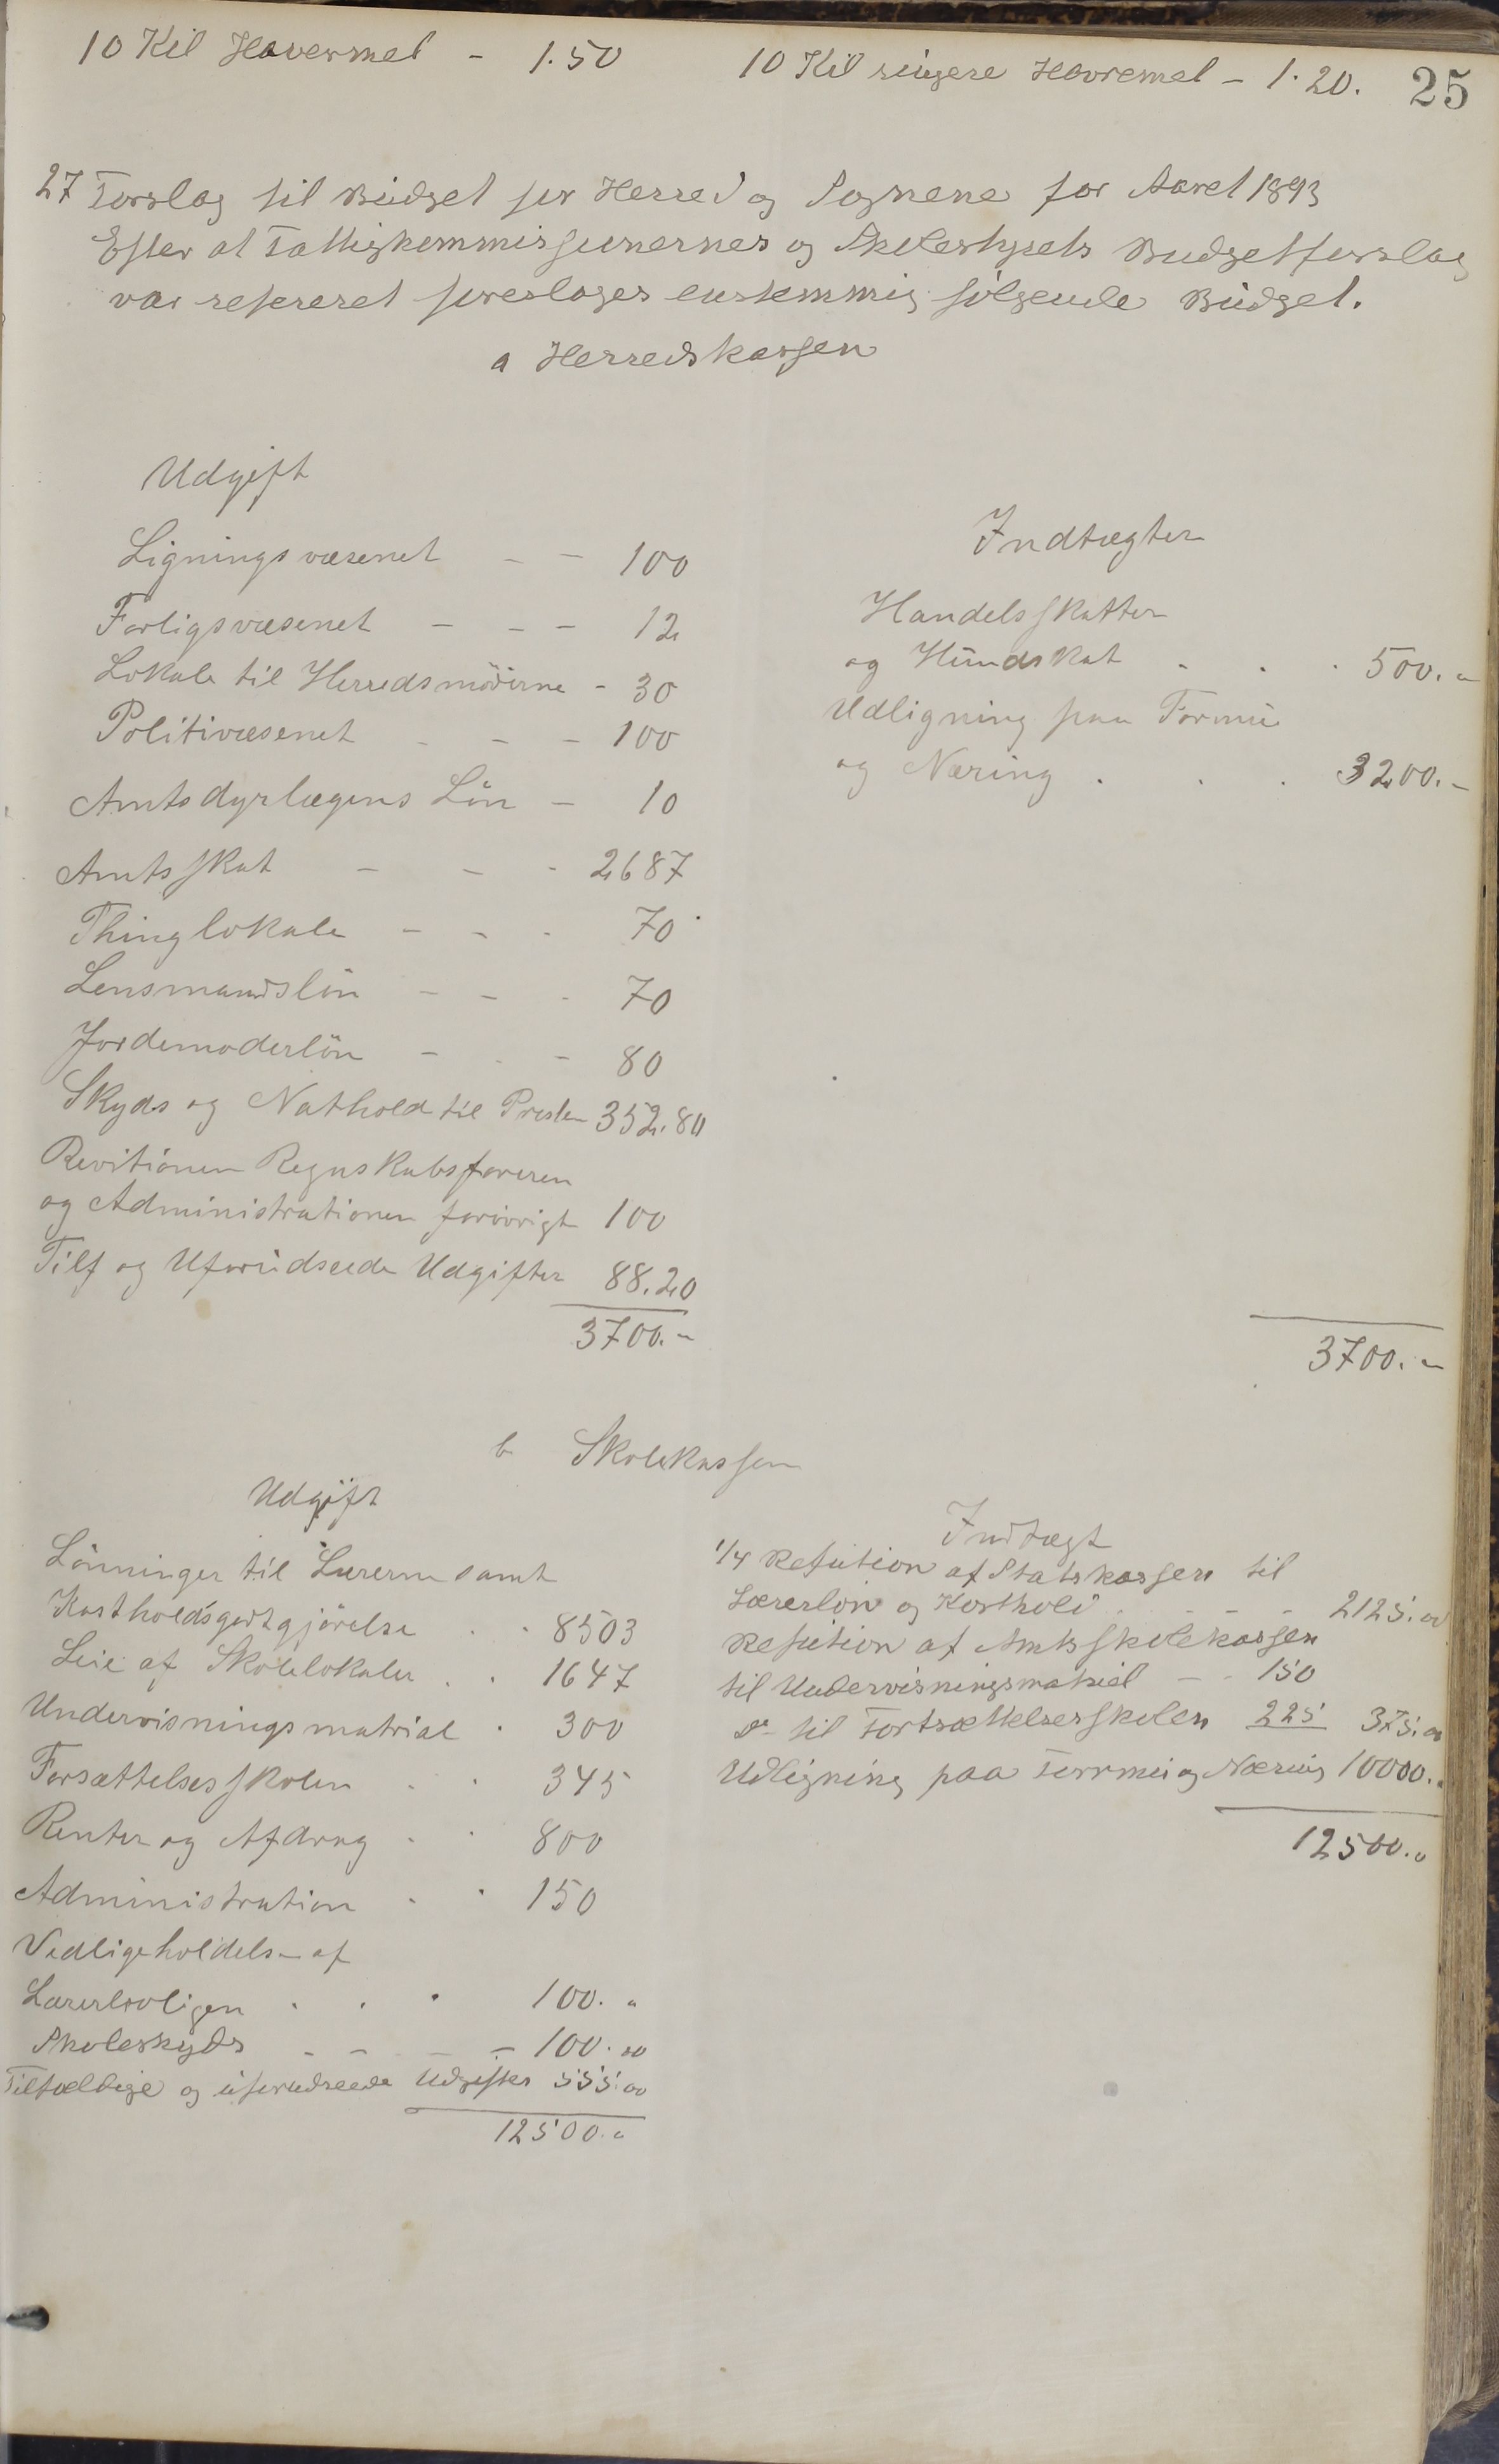 10 Kil Havermel - 1.50 10 Kil ringere Havremel - 1.20. 25
27 Forslag til Budget for Herred og Sognene for Aaret 1893
Efter at Fattigkommissionernes og Skolestyrets Budgetforslag
var refereret foreslages enstemmig følgende Budget.
a Herredskassen
Udgift
Ligningsvæsenet - - 100
Forligsvæsenet - - - 12
Lokale til Herredsmøderne - 30
Politivæsenet - - - 100
Amtsdyrlægens Løn - 10
Amtsskat - - - 2687
Thinglokale - - - 70
Lensmandsløn - - - 70
Jordemoderløn - - - 80
Skyds og Nathold til Presten 352.80
Revitionen Regnskabsføreren
og Administrationen forøvrigt 100
Tilf og Uforudseede Udgifter 88.20
3700.-
Indtægter
Handelsskatter
og Hundskat . . . 500.-
Udligning paa Formu
og Næring . . . 3200.-
3700.-
b Skolekassen
Udgift
Lønninger til Lærerne samt
Kostholdsgodtgjørelse . . 8503
Leie af Skolelokaler . . 1647
Undervisningsmatrial . 300
Forsættelsesskolen . . 345
Renter og Afdrag . . 800
Administration . . 150
Vedligeholdelse af
Lærerboligen . . . 100. "
Skoleskyds - - - - 100.00
Tilfældige og uforudseede Udgifter 555.00
12500."
Indtægt
1/4 Refution af Statskassen til
Lærerløn og Kosthold . - - - 2125.00
Refution af Amtsskolekassen
til Undervisningsmatrial - - 150
do til Fortsættelsesskolen 225 375.00
Udligning paa Formu og Næring 10000."
12500."